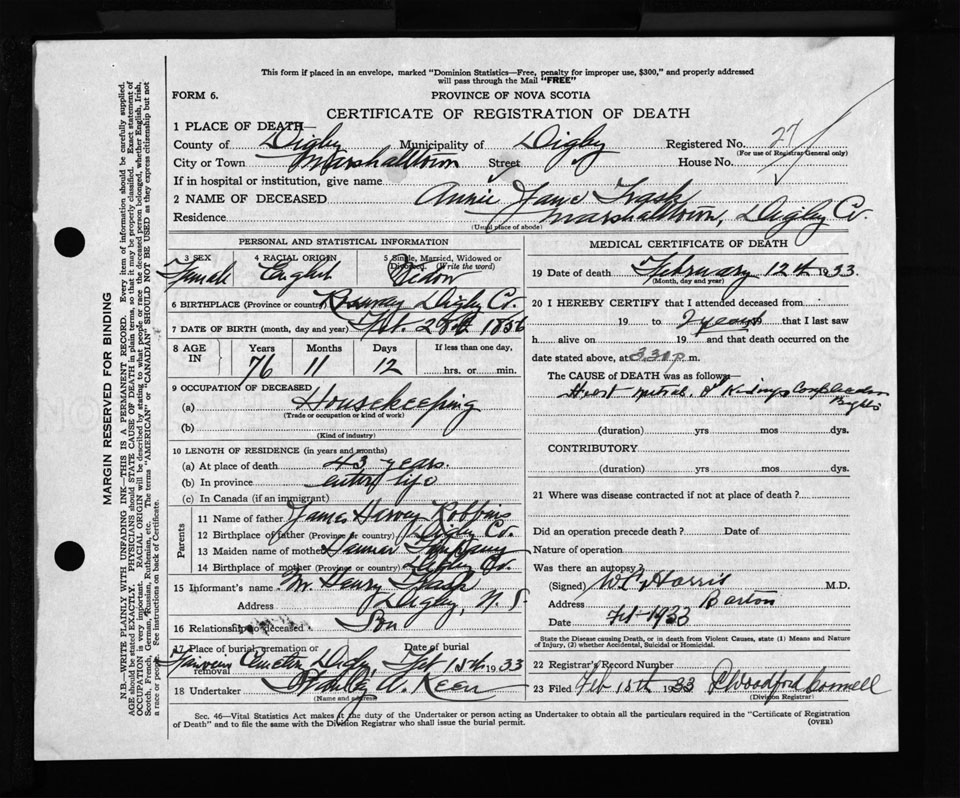 This form if placed in an envelope, marked "Dominion Statistics—Free, penalty for improper use, $300," and properly addressed
will pass through the Mail "FREE"
FORM 6.
PROVINCE OF NOVA SCOTIA
CERTIFICATE OF REGISTRATION OF DEATH
1 PLACE OF DEATH
County of Digby Municipality of Digby Registered No. 27
(For use of Registrar General only)
City or Town Marshalltown Street House No.
If in hospital or institution, give name
2 NAME OF DECEASED Annie Jane Trask
Residence Marshalltown, Digby Co.
(Usual place of abode)
PERSONAL AND STATISTICAL INFORMATION
3 SEX 4 RACIAL ORIGIN 5 Single, Married, Widowed or
Divorced. (Write the word)
Female English Widow
6 BIRTHPLACE (Province or country) Digby Co.
7 DATE OF BIRTH (month, day and year) 1856
8 AGE IN
Years Months Days If less than one day,
76 11 12 hrs. or min.
9 OCCUPATION OF DECEASED
(a) Housekeeping
(Trade or occupation or kind of work)
(b)
(Kind of industry)
10 LENGTH OF RESIDENCE (in years and months)
(a) At place of death 43 years.
(b) In province entire life
(c) In Canada (if an immigrant)
Parents
11 Name of father James Harvey Robbins
12 Birthplace of father (Province or country) Digby Co.
13 Maiden name of mother
14 Birthplace of mother (Province or country) Digby Co.
15 Informant's name Mr. Henry Trask
Address Digby, N. S.
16 Relationship to deceased Son
17 Place of burial, cremation or removal Date of burial
Cemetery Digby Feb 15th 1933
18 Undertaker A. Keen
(Name and address)
MEDICAL CERTIFICATE OF DEATH
19 Date of death February 12th 1933.
(Month, day and year)
20 I HEREBY CERTIFY that I attended deceased from
19 to 2 years 19 that I last saw
h alive on 19 and that death occurred on the
date stated above, at 3.30 p.m.
The CAUSE of DEATH was as follows
(duration) yrs mos dys.
CONTRIBUTORY
(duration) yrs mos dys.
21 Where was disease contracted if not at place of death?
Did an operation precede death? Date of
Nature of operation
Was there an autopsy?
(Signed) Harris M.D.
Address Barton
Date Feb-1933
State the Disease causing Death, or in death from Violent Causes, state (1) Means and Nature
of Injury, (2) whether Accidental, Suicidal or Homicidal.
22 Registrar's Record Number
23 Filed Feb 15th 1933
(Division Registrar)
Sec. 46—Vital Statistics Act makes it the duty of the Undertaker or person acting as Undertaker to obtain all the particulars required in the "Certificate of Registration
of Death" and to file the same with the Division Registrar who shall issue the burial permit. (OVER)
MARGIN RESERVED FOR BINDING
N.B.—WRITE PLAINLY WITH UNFADING INK—THIS IS A PERMANENT RECORD. Every item of information should be carefully supplied.
AGE should be stated EXACTLY. PHYSICIANS should STATE CAUSE OF DEATH in plain terms, so that it may be properly classified. Exact statement of
OCCUPATION is very important. RACIAL ORIGIN will be described by stating to what people or race the deceased person belonged, whether English, Irish,
Scotch, French, German, Russian, Ruthenian, etc. The terms "AMERICAN" or "CANADIAN" SHOULD NOT BE USED as they express citizenship but not
a race or people. See instructions on back of Certificate.